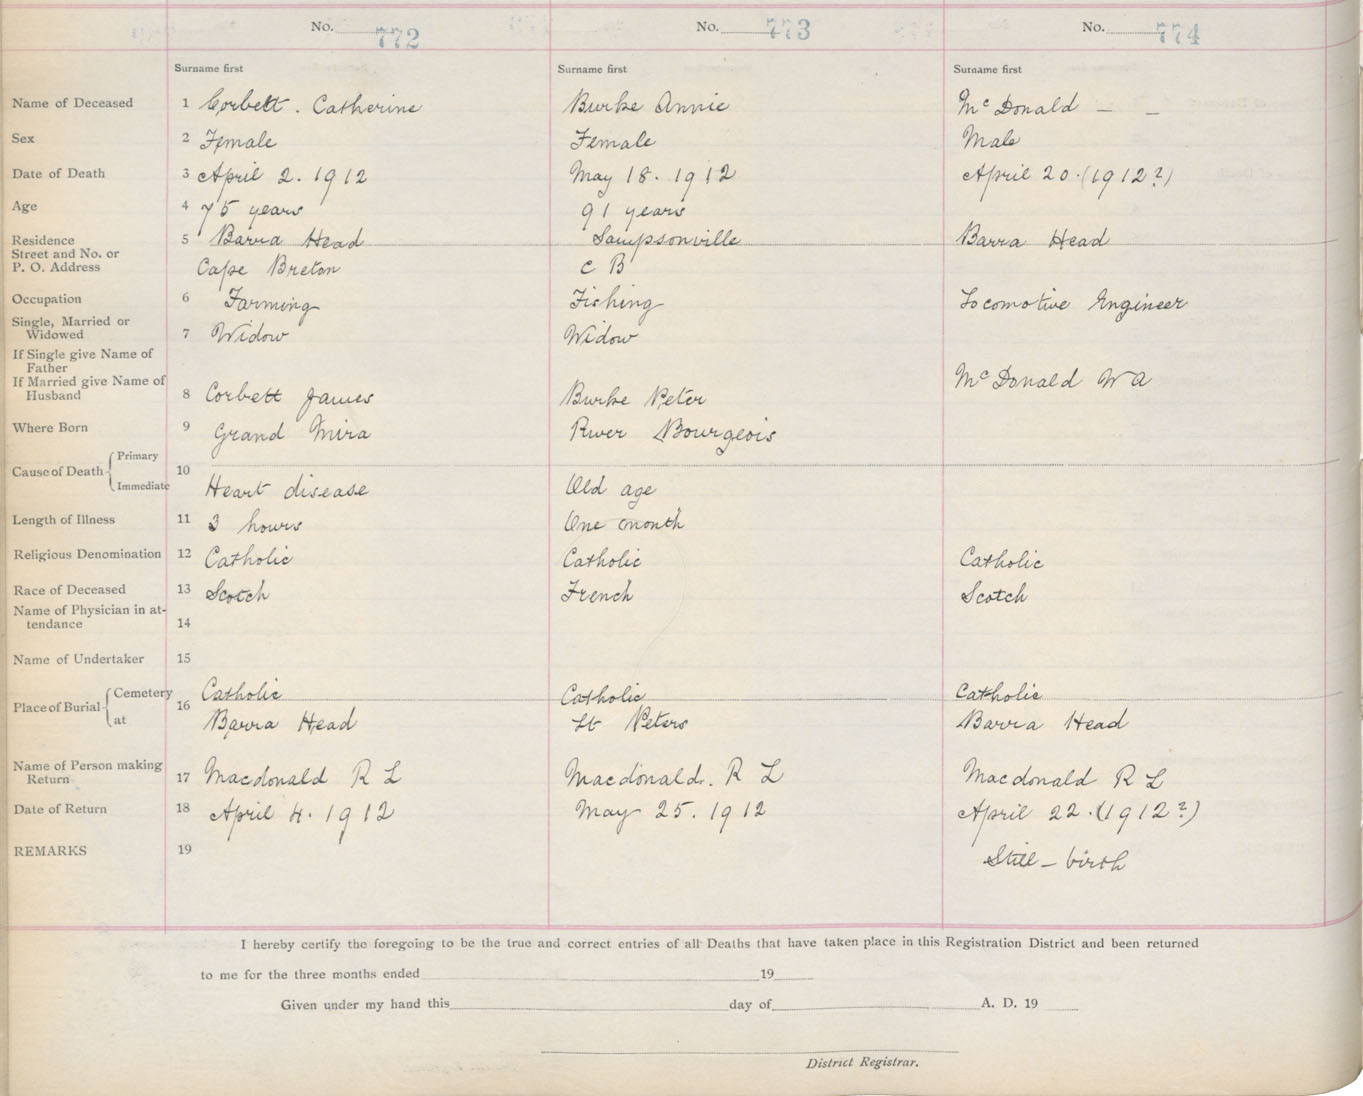 No. 772 No. 773 No. 774
Surname first Surname first Surname first
Name of Deceased 1 Corbett. Catherine Burke Annie McDonald — —
Sex 2 Female Female Male
Date of Death 3 April 2. 1912 May 18. 1912 April 20. (1912?)
Age 4 75 years 91 years
Residence 5 Barra Head Sampsonville Barra Head
Street and No. or
P. O. Address Cape Breton C B
Occupation 6 Farming Fishing Locomotive Engineer
Single, Married or
Widowed 7 Widow Widow
If Single give Name of
Father
If Married give Name of McDonald W A
Husband 8 Corbett James Burke Peter
Where Born 9 Grand Mira River Bourgeois
Cause of Death Primary
10
Immediate Heart disease Old age
Length of Illness 11 3 hours One month
Religious Denomination 12 Catholic Catholic Catholic
Race of Deceased 13 Scotch French Scotch
Name of Physician in at-
tendance 14
Name of Undertaker 15
Place of Burial Cemetery 16 Catholic Catholic Catholic
at Barra Head St Peters Barra Head
Name of Person making
Return 17 Macdonald R L Macdonald. R L Macdonald R L
Date of Return 18 April 4. 1912 May 25. 1912 April 22. (1912?)
REMARKS 19 Still - birth
I hereby certify the foregoing to be the true and correct entries of all Deaths that have taken place in this Registration District and been returned
to me for the three months ended 19
Given under my hand this day of A. D. 19
District Registrar.